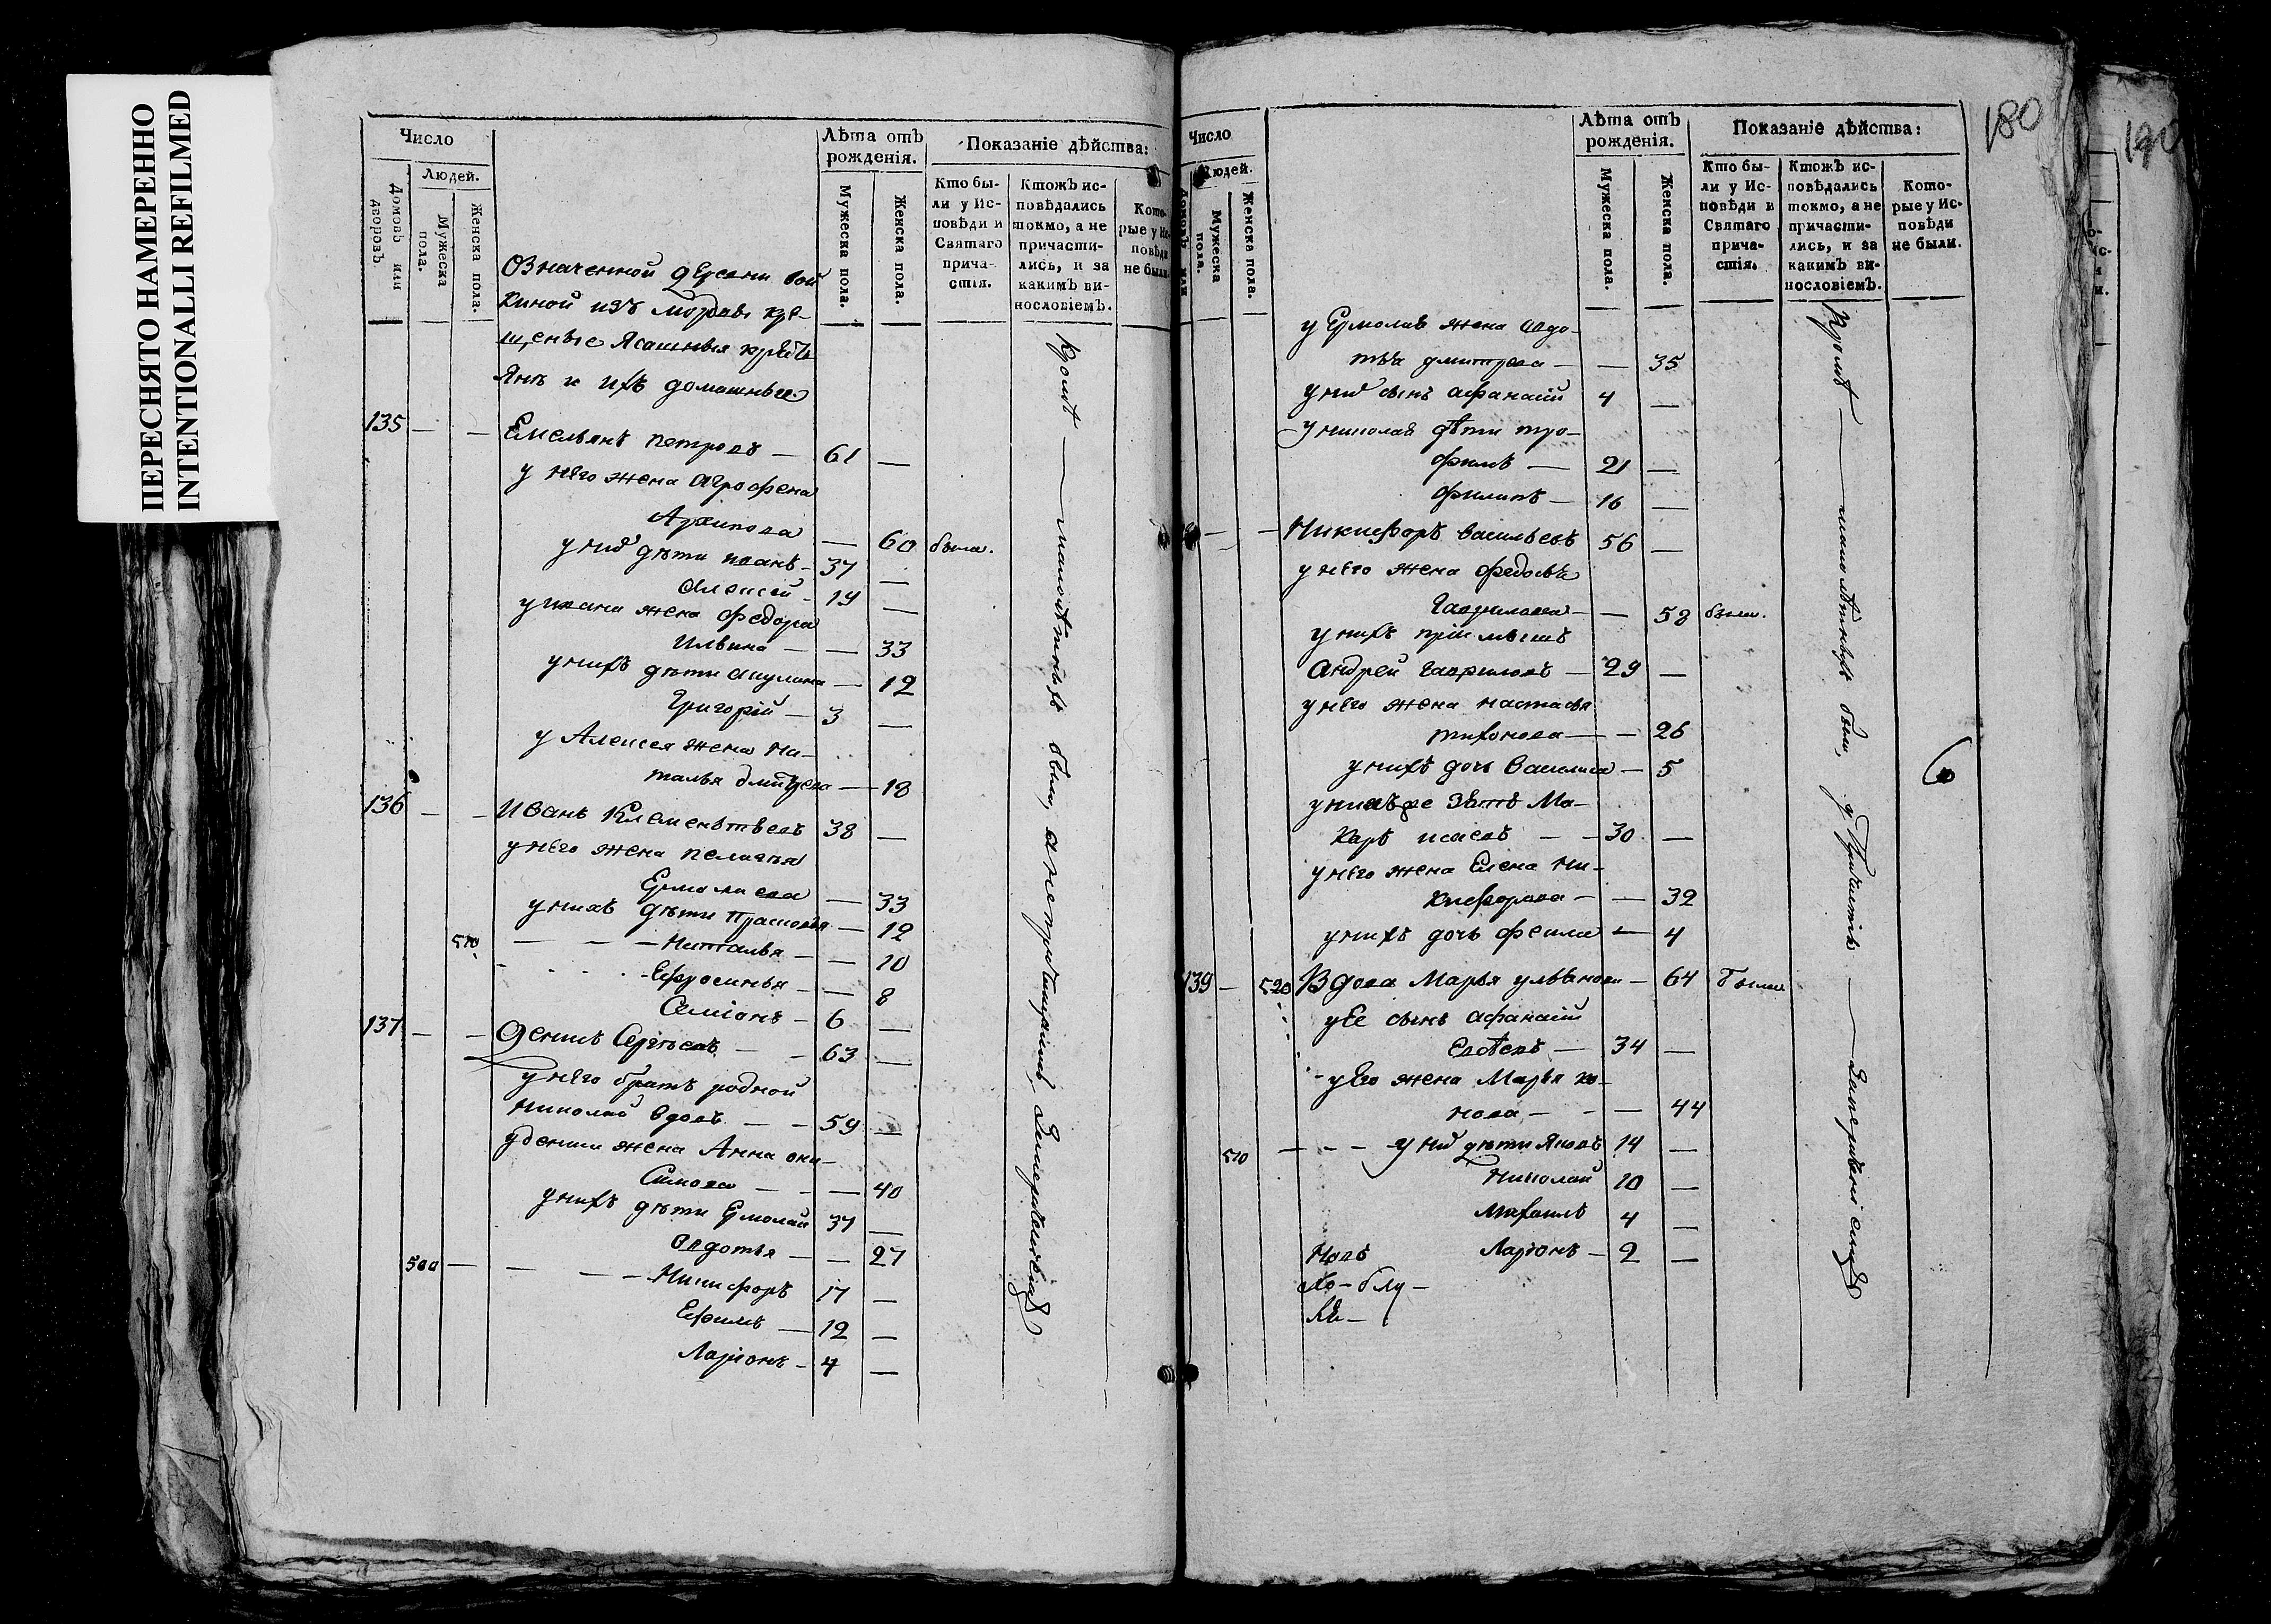 ПЕРЕСНЯТО НАМЕРЕННО
INTENTIONALLI REFILMED
Число
Людей.
Домовъ или дворовъ.
Мужеска пола.
Женска пола.
Лѣта отъ
рожденія.
Мужеска пола.
Женска пола.
Показаніе дѣйства:
Кто бы-
ли у Ис-
повѣди и
Святаго
прича-
стія.
Ктожъ ис-
повѣдались
токмо, а не
причасти-
лись, и за
какимъ ви-
нословіемъ.
Кото-
рые у Ис-
повѣди
не были.
Означенной деревни вой
киной изъ мордвы кре-
щеные Ясашныя крестъ
Янѣ и ихъ домашные
135 — — Емельянъ петровъ — 61 —
у него жена Агрофена
Архипова — 60 была.
у них дѣти иванъ - 37 —
Алексей - 19 —
у ивана жена федора
Ильина — — 33
у нихъ дѣти акулина — 12
Григорій — 3 —
у Алексея жена На-
талья дмитрева — 18
136 — — Иванъ Клементьевъ 38 —
у него жена пелагея
Ермолаева — 33
у нихъ дѣти Прасковья — 12
510 — — — Наталья — — 10
Ефросинья — — 8
Симіонъ — 6 —
137 — — Денисъ Сергѣевъ — — 63 —
у него братъ родной
Николай вдовъ — — 59 —
у дениса жена Анна они-
Симова — — — 40
у нихъ дѣти Ермолай 37 —
Овдотья — — 27
500 — — — — Никифоръ 17 —
Ефимъ — 12 —
Ларионъ — 4 —
Кромѣ — малолѣтныхъ были, а не причащались
180
190
Число
Людей.
Домовъ или
Мужеска пола.
Женска пола.
Лѣта отъ
рожденія.
Мужеска пола.
Женска пола.
Показаніе дѣйства:
Кто бы-
ли у Ис-
повѣди и
Святаго
прича-
стія.
Ктожъ ис-
повѣдались
токмо, а не
причасти-
лись, и за
какимъ ви-
нословіемъ.
Кото-
рые у Ис-
повѣди
не были.
у Ермолая жена Овдо-
тья дмитрева — — 35
у них сынъ афанасій 4 —
у николая дѣти тро-
фимъ — 21 —
филипъ — 16 —
— — Никифоръ васильевъ 56 —
у него жена федосья
Гаврилова — — 58 были.
у нихъ пріимышъ
Андрей Гавриловъ — 29 —
у него жена настасья
тихонова — — 26
у нихъ дочь Василиса — 5
у нихъ же зять Ма-
каръ исаевъ — — 30 —
у него жена Елена Ни-
кифорова — — 32
у нихъ дочь фекла — 4
139 — 520 Вдова Марья ульянова — 64 была
у Ее сынъ афанасій
— 34 —
у Его жена Марья ко-
нова — — — 44
510 — — — у них дѣти Яковъ 14 —
Николай 10 —
Михаилъ 4 —
Ларіонъ — 2 —
Кромѣ — малолѣтныхъ были,